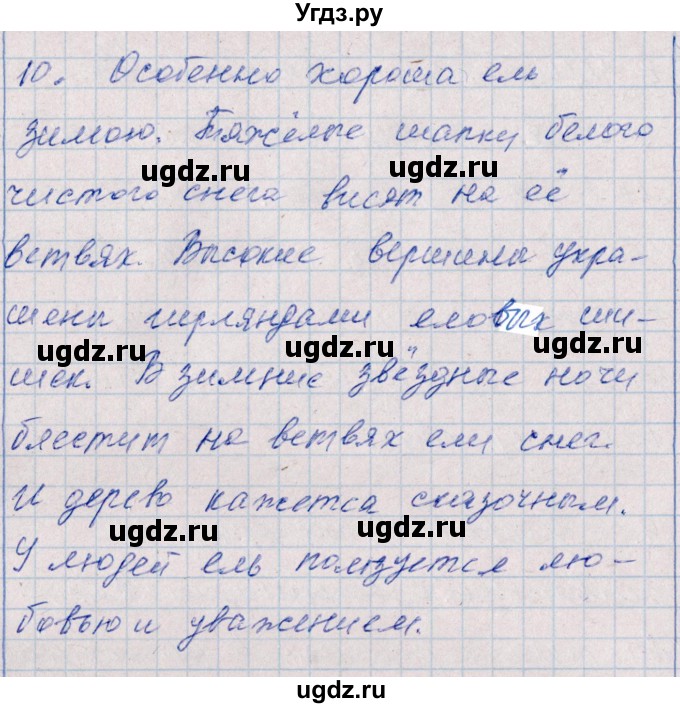 Угдз.ру
10. Особенно хороша ель
зимою. Тяжёлые шапки белого
ugdz.ru ugdz.ru
чистого снега висят на её
ветвях. Высокие вершины укра-
шены гирляндами еловых ши-
ugdz.ru ugdz.ru ugdz.ru
шек. В зимние звёздные ночи
блестит на ветвях ели снег.
И дерево кажется сказочным.
ugdz.ru ugdz.ru
У людей ель пользуется лю-
бовью и уважением.
ugdz.ru